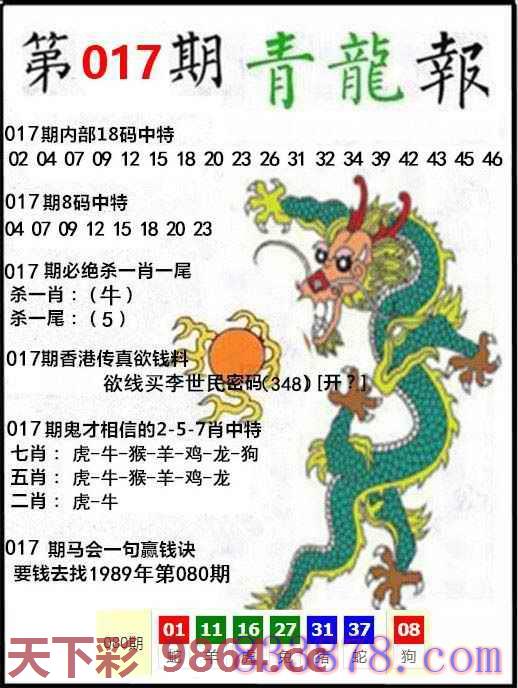 第017期青龍報
017期内部18码中特
02 04 07 09 12 15 18 20 23 26 31 32 34 39 42 43 45 46
017期8码中特
04 07 09 12 15 18 20 23
017期必绝杀一肖一尾
杀一肖：（牛）
杀一尾：（5）
017期香港传真欲钱料
欲线买李世民密码(348) [开？]
017期鬼才相信的2-5-7肖中特
七肖：虎-牛-猴-羊-鸡-龙-狗
五肖：虎-牛-猴-羊-鸡-龙
二肖：虎-牛
017期马会一句赢钱诀
要钱去找1989年第080期
080期 01 11 16 27 31 37 08
蛇 羊 虎 兔 猪 蛇 狗
天下彩 9864.cc